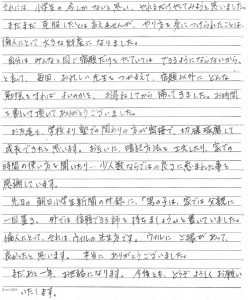 それには 小学生の 点しかないと思い、やれるだけやってみようと思いました。
まだまだ 克服したとは言えませんが、やり方を身につけられたことは、
倫人にとって 大きな財産に なりました。
最初は みんなと同じ宿題だけをやっていては できるようにならないから
と言って、毎回、お忙しい先生を つかまえて、宿題以外に どんな
勉強をすれば よいのかを、お尋ねしてから 帰ってきました。お時間
を割いて頂いて ありがとうございました。
お友達も、学校より 塾での関わりの方が密接で、切磋琢磨して
成長できたと思います。お互いに、暗記方法を 工夫したり、家での
時間の使い方を聞いたり… 少人数ならではの良さに恵まれた事を
感謝しています。
先日の 朝日小学生新聞の付録に、「男の子は、家では父親に
一目置き、外では 信頼できる師を 持ちましょう」と書いていました。
倫人にとって、それは ウィルの先生方です。ウィルに ご縁があって、
良かったと思います。 本当に ありがとうございました。
まだあと一年、お世話になります。今後とも、どうぞ よろしくお願い
いたします。